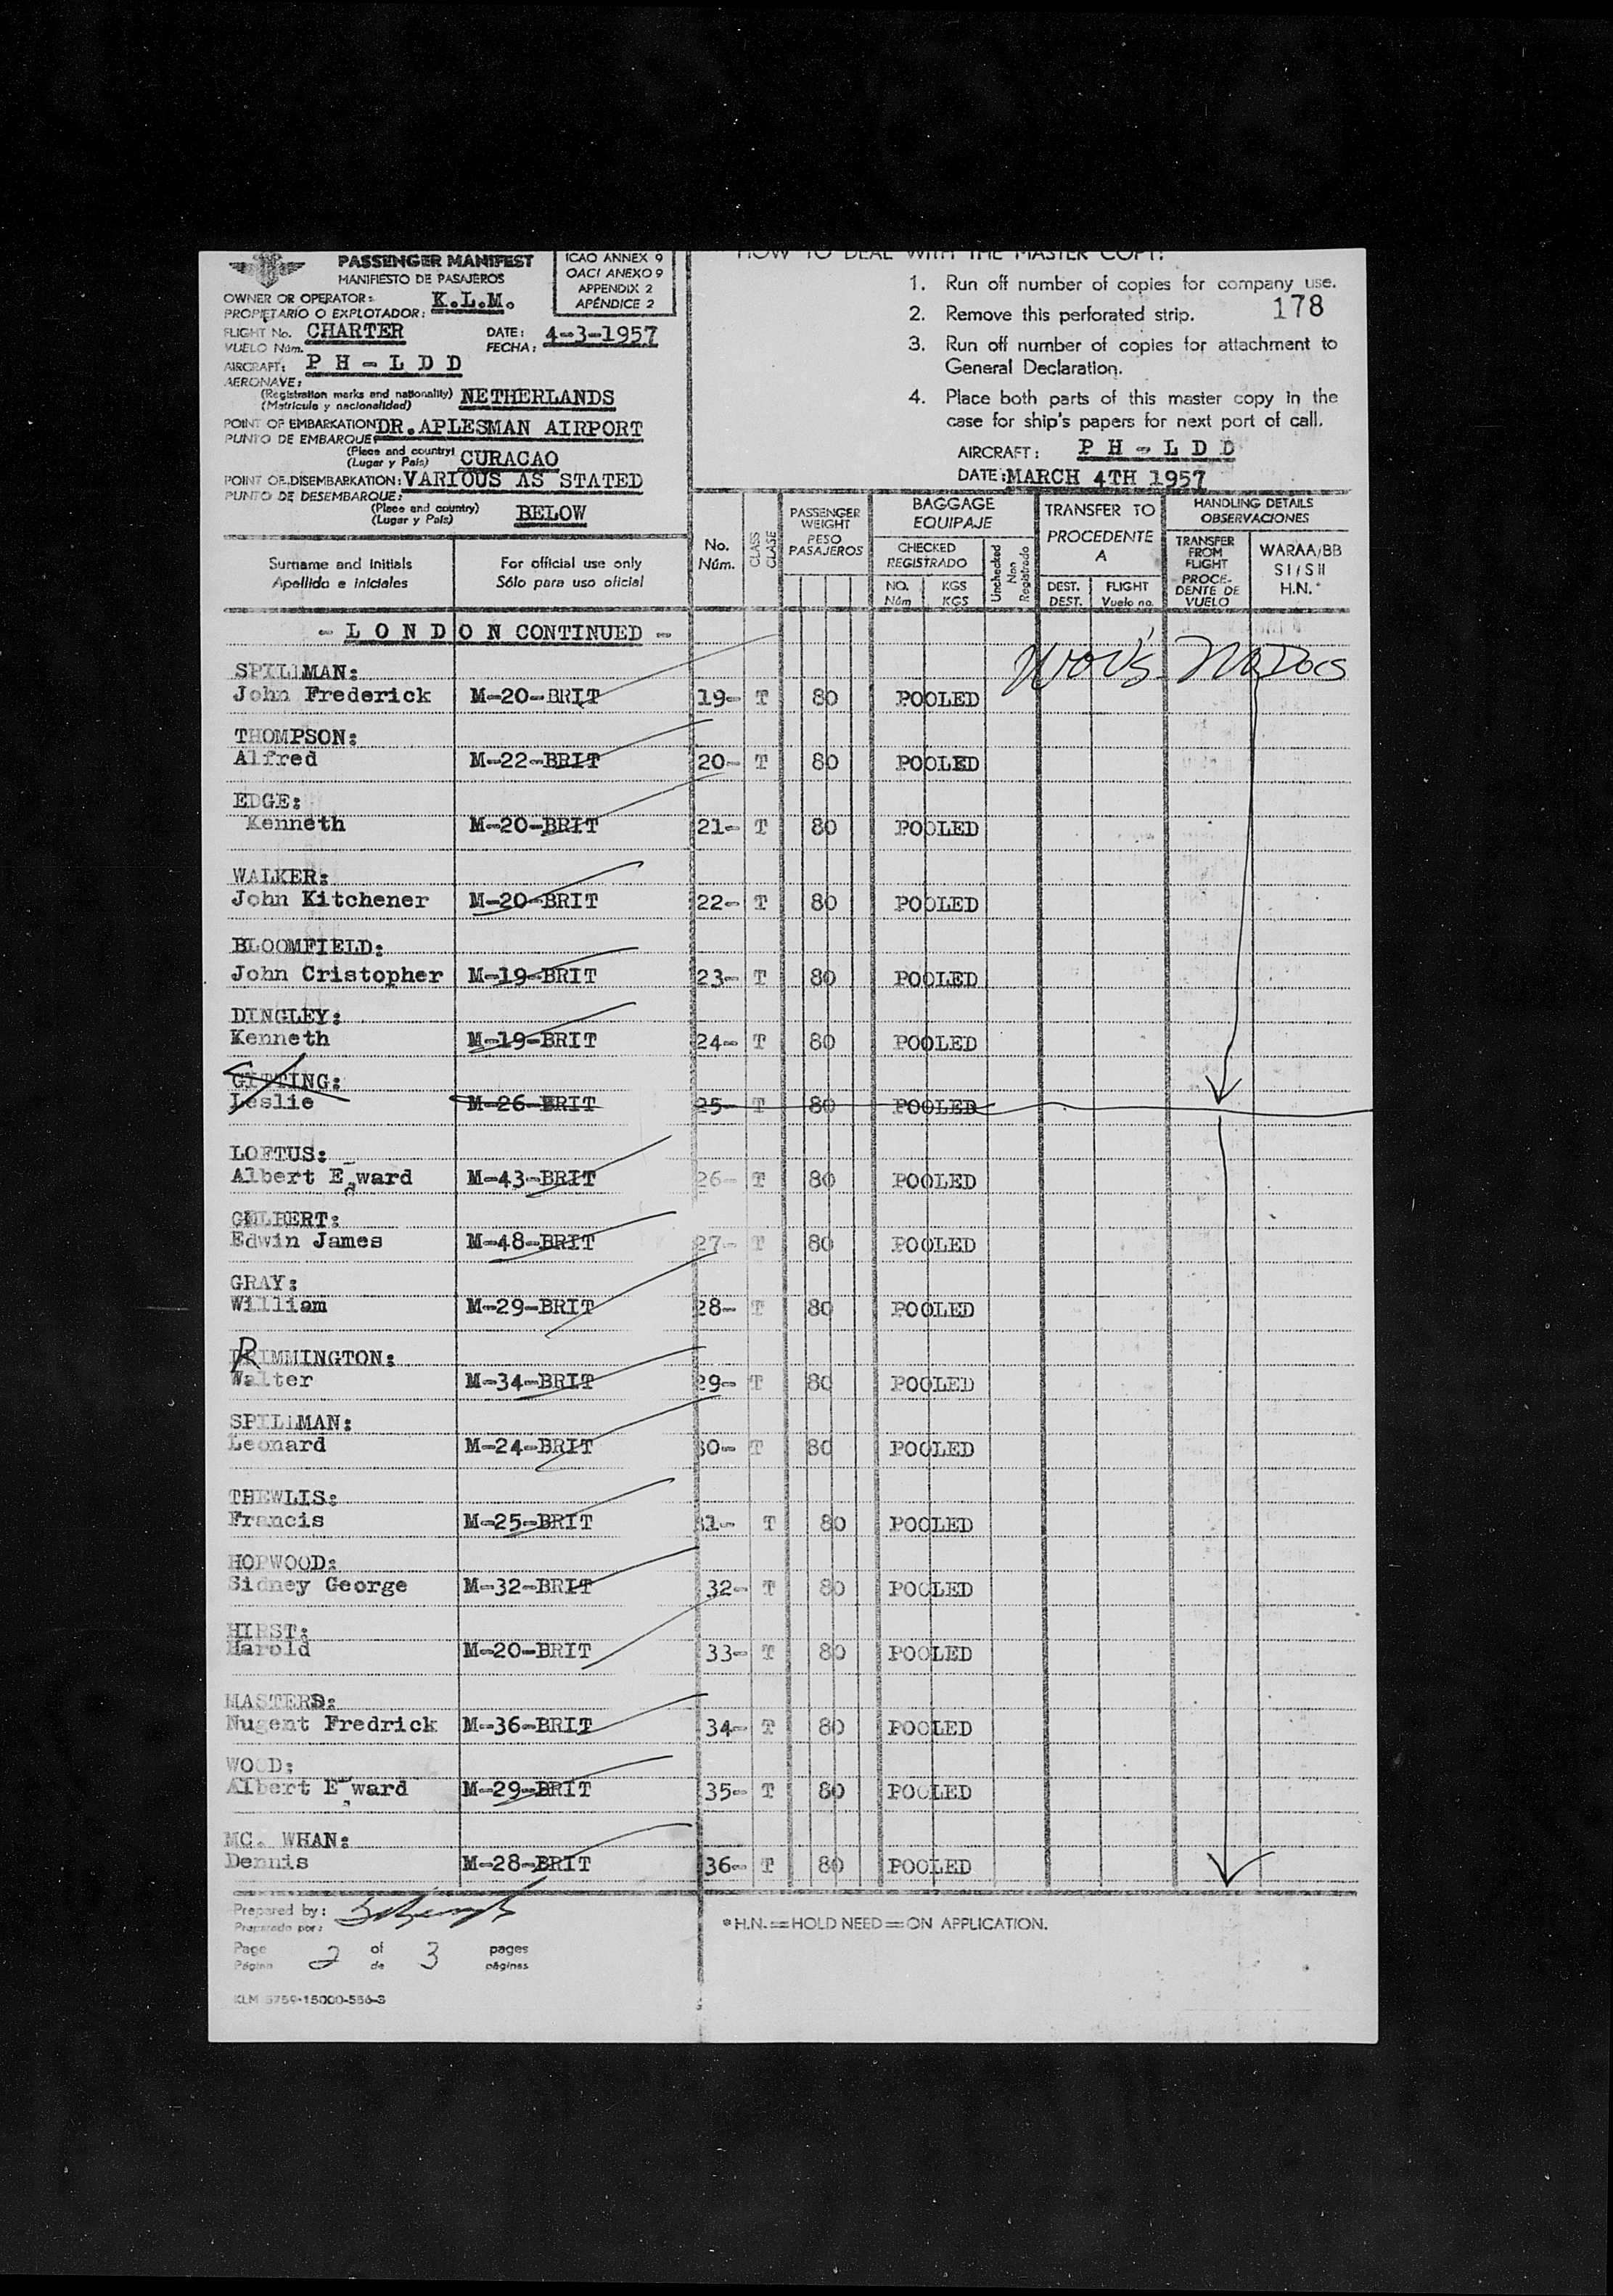 PASSENGER MANIFEST
MANIFIESTO DE PASAJEROS
ICAO ANNEX 9
OACI ANEXO 9
APPENDIX 2
APÉNDICE 2
OWNER OR OPERATOR: K.L.M.
PROPIETARIO O EXPLOTADOR:
FLIGHT No. CHARTER DATE: 4-3-1957
VUELO Núm. FECHA:
AIRCRAFT: P H - L D D
AERONAVE:
(Registration marks and nationality) NETHERLANDS
(Matricula y nacionalidad)
POINT OF EMBARKATION DR. APLESMAN AIRPORT
PUNTO DE EMBARQUE:
(Place and country) CURACAO
(Lugar y País)
POINT OF DISEMBARKATION: VARIOUS AS STATED
PUNTO DE DESEMBARQUE:
(Place and country) BELOW
(Lugar y País)
HOW TO DEAL WITH THE MASTER COPY:
1. Run off number of copies for company use.
178
2. Remove this perforated strip.
3. Run off number of copies for attachment to
General Declaration.
4. Place both parts of this master copy in the
case for ship's papers for next port of call.
AIRCRAFT: P H - L D D
DATE: MARCH 4TH 1957
Surname and Initials
Apellido e iniciales
For official use only
Sólo para uso oficial
No.
Núm.
CLASS
CLASE
PASSENGER
WEIGHT
PESO
PASAJEROS
BAGGAGE
EQUIPAJE
CHECKED
REGISTRADO
NO.
Núm
KGS
KGS
Unchecked
Non
Registrado
TRANSFER TO
PROCEDENTE
A
DEST.
DEST.
FLIGHT
Vuelo no.
HANDLING DETAILS
OBSERVACIONES
TRANSFER
FROM
FLIGHT
PROCE-
DENTE DE
VUELO
WARAA/BB
SI/SII
H.N.*
- L O N D O N CONTINUED -
SPILLMAN:
John Frederick M-20-BRIT 19- T 80 POOLED
THOMPSON:
Alfred M-22-BRIT 20- T 80 POOLED
EDGE:
Kenneth M-20-BRIT 21- T 80 POOLED
WALKER:
John Kitchener M-20-BRIT 22- T 80 POOLED
BLOOMFIELD:
John Cristopher M-19-BRIT 23- T 80 POOLED
DINGLEY:
Kenneth M-19-BRIT 24- T 80 POOLED
GITTING:
Leslie M-26-BRIT 25- T 80 POOLED
LOFTUS:
Albert Edward M-43-BRIT 26- T 80 POOLED
GILBERT:
Edwin James M-48-BRIT 27- T 80 POOLED
GRAY:
William M-29-BRIT 28- T 80 POOLED
RIMMINGTON:
Walter M-34-BRIT 29- T 80 POOLED
SPILLMAN:
Leonard M-24-BRIT 30- T 80 POOLED
THEWLIS:
Francis M-25-BRIT 31- T 80 POOLED
HOPWOOD:
Sidney George M-32-BRIT 32- T 80 POOLED
HIRST:
Harold M-20-BRIT 33- T 80 POOLED
MASTERS:
Nugent Fredrick M-36-BRIT 34- T 80 POOLED
WOOD:
Albert Edward M-29-BRIT 35- T 80 POOLED
MC. WHAN:
Dennis M-28-BRIT 36- T 80 POOLED
Prepared by:
Preparado por:
Page 2 of 3 pages
Página de páginas
KLM 5759-15000-556-3
*H.N.=HOLD NEED=ON APPLICATION.